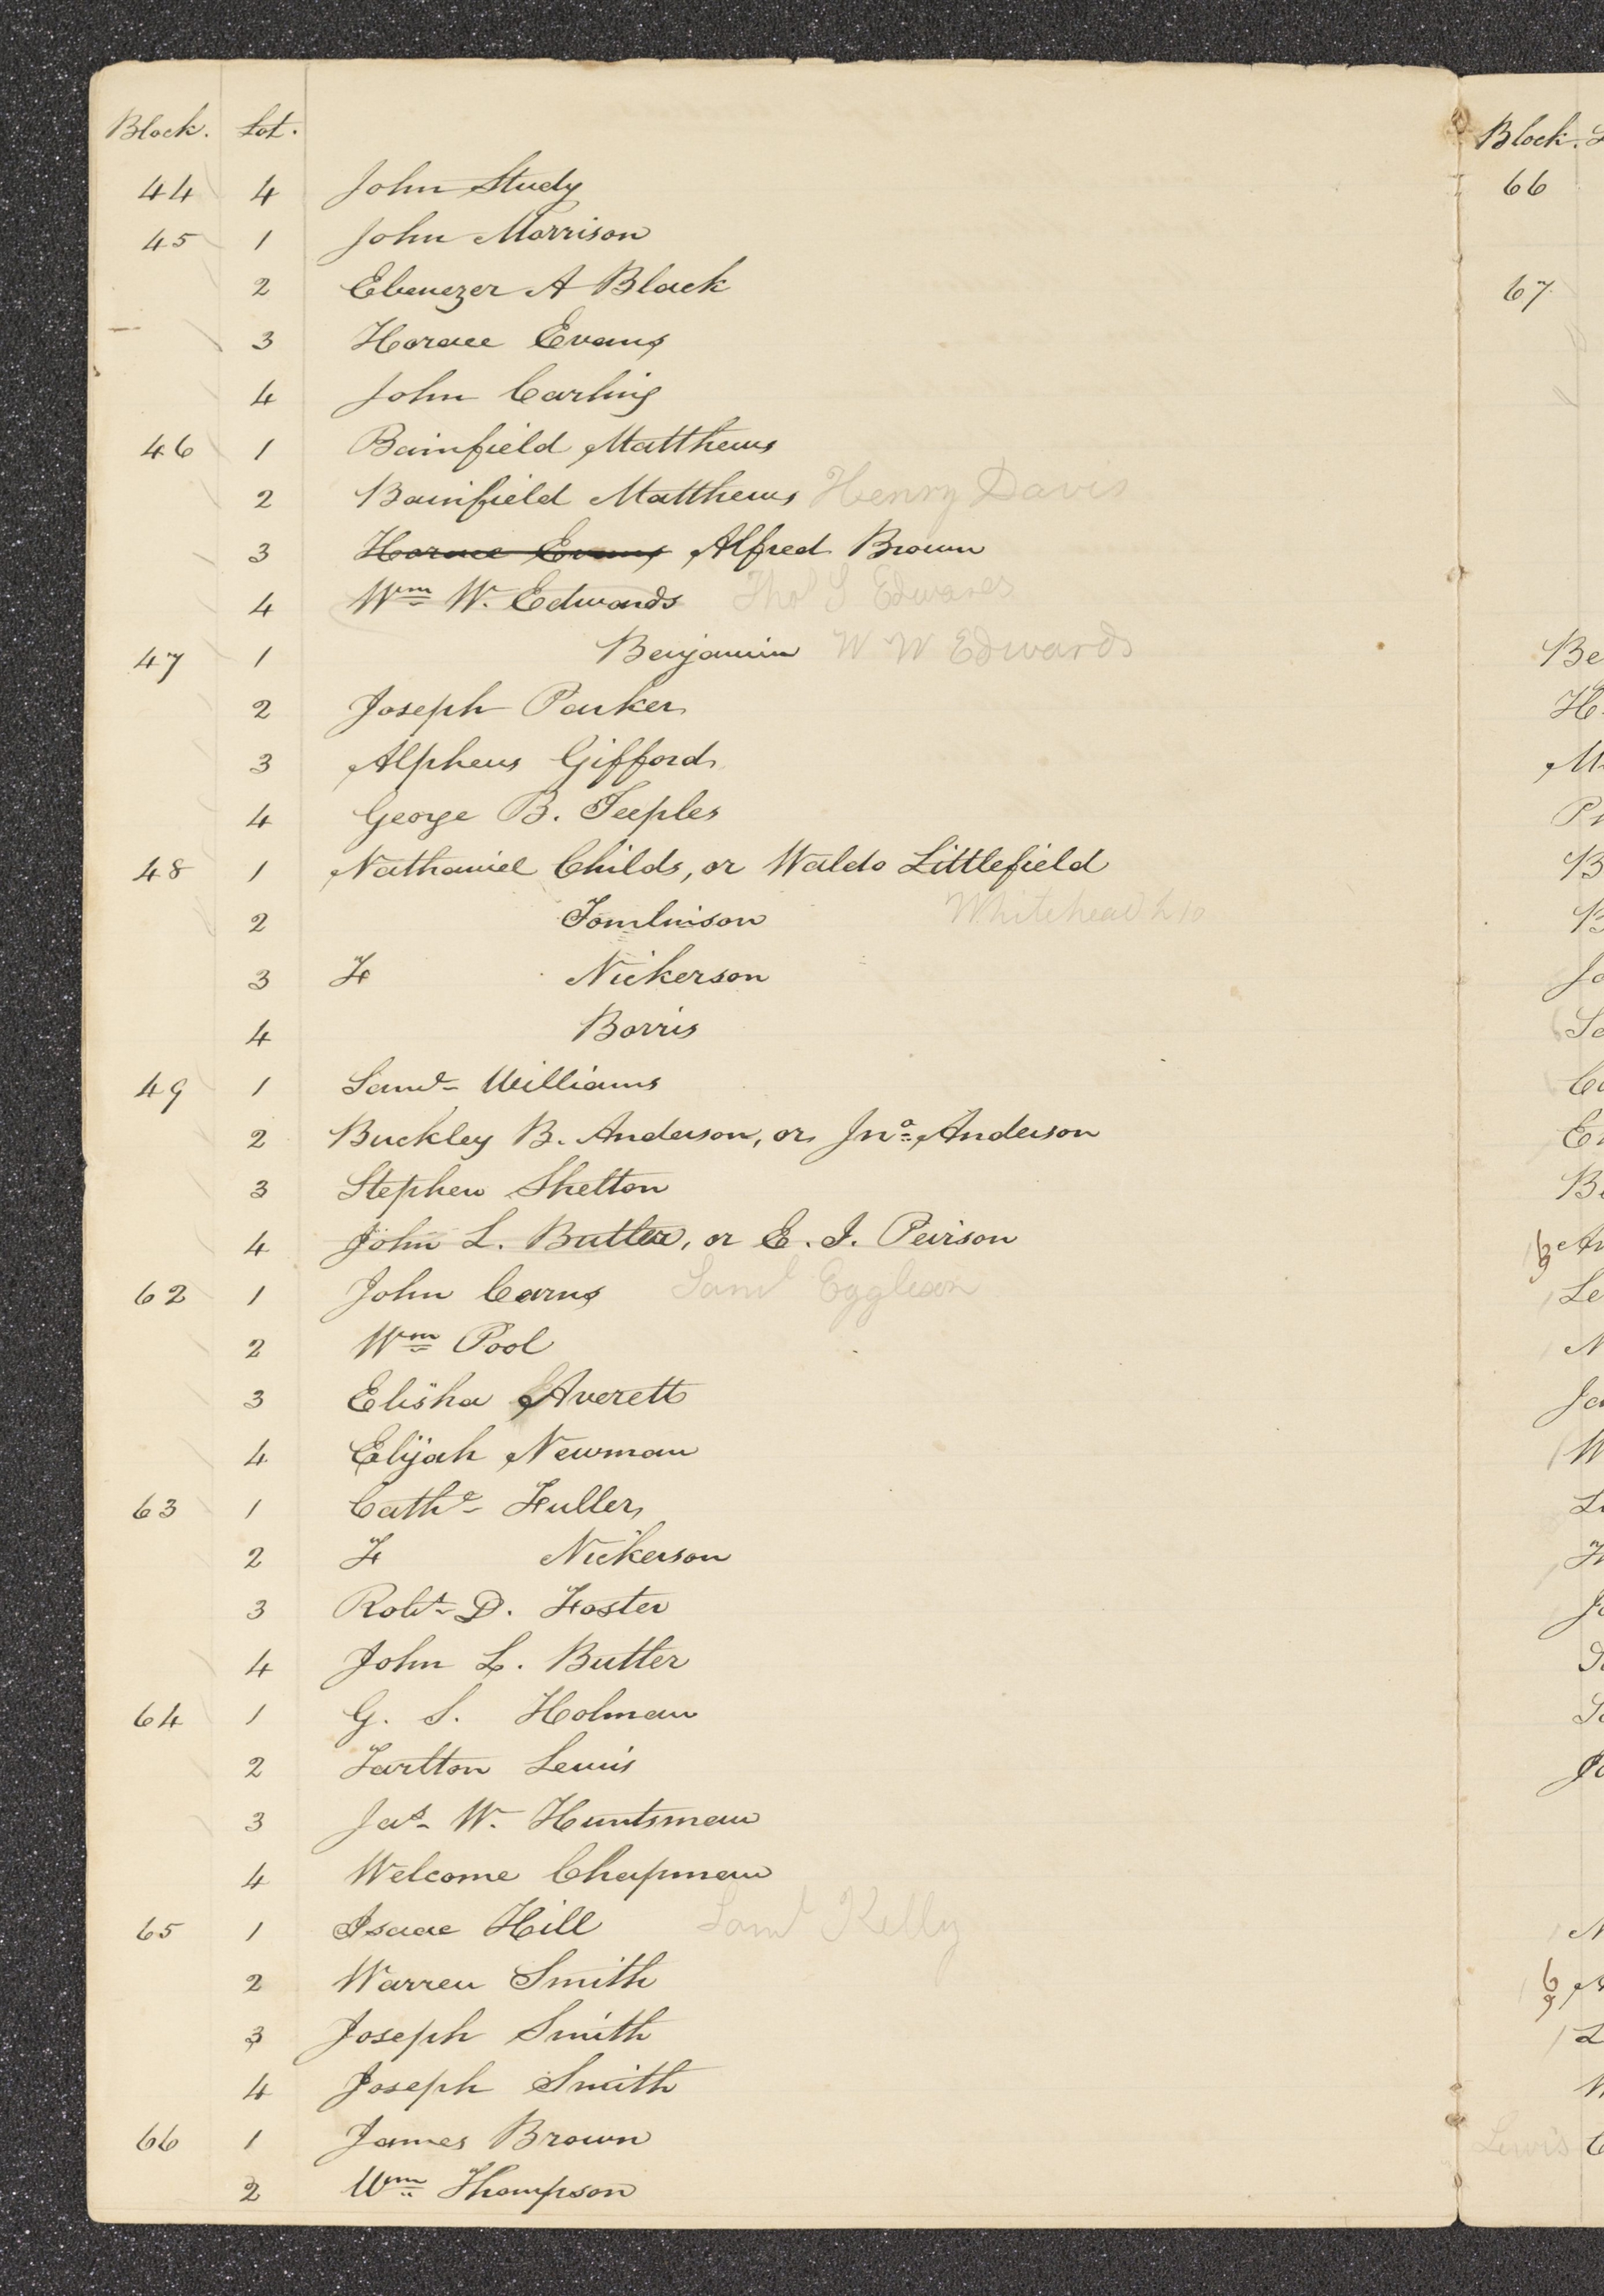 Block. Lot.
44 4 John Study
45 1 John Morrison
2 Ebenezer A Black
3 Horace Evans
4 John Carling
46 1 Bainfield Matthews
2 Bainfield Matthews Henry Davis
3 Horace Evans Alfred Brown
4 Wm W. Edwards Tho S Edwards
47 1 Benjamin W W Edwards
2 Joseph Parker
3 Alpheus Gifford
4 George B. Teeples
48 1 Nathaniel Childs, or Waldo Littlefield
2 Tomlinson Whitehead
3 F Nickerson
4 Borris
49 1 Saml Williams
2 Buckley B. Anderson, or Jno Anderson
3 Stephen Shelton
4 John L. Butler, or E. I. Peirson
62 1 John Carns Saml Eggleson
2 Wm Pool
3 Elisha Averett
4 Elijah Newman
63 1 Cathe Fuller
2 F Nickerson
3 Robt D. Foster
4 John L. Butler
64 1 G. S. Holman
2 Tarlton Lewis
3 Jas W. Huntsman
4 Welcome Chapman
65 1 Isaac Hill Saml Kelly
2 Warren Smith
3 Joseph Smith
4 Joseph Smith
66 1 James Brown
2 Wm Thompson
Block.
66
67
Be
H.
M
B
B
Jo
Le
N
W
Lewis